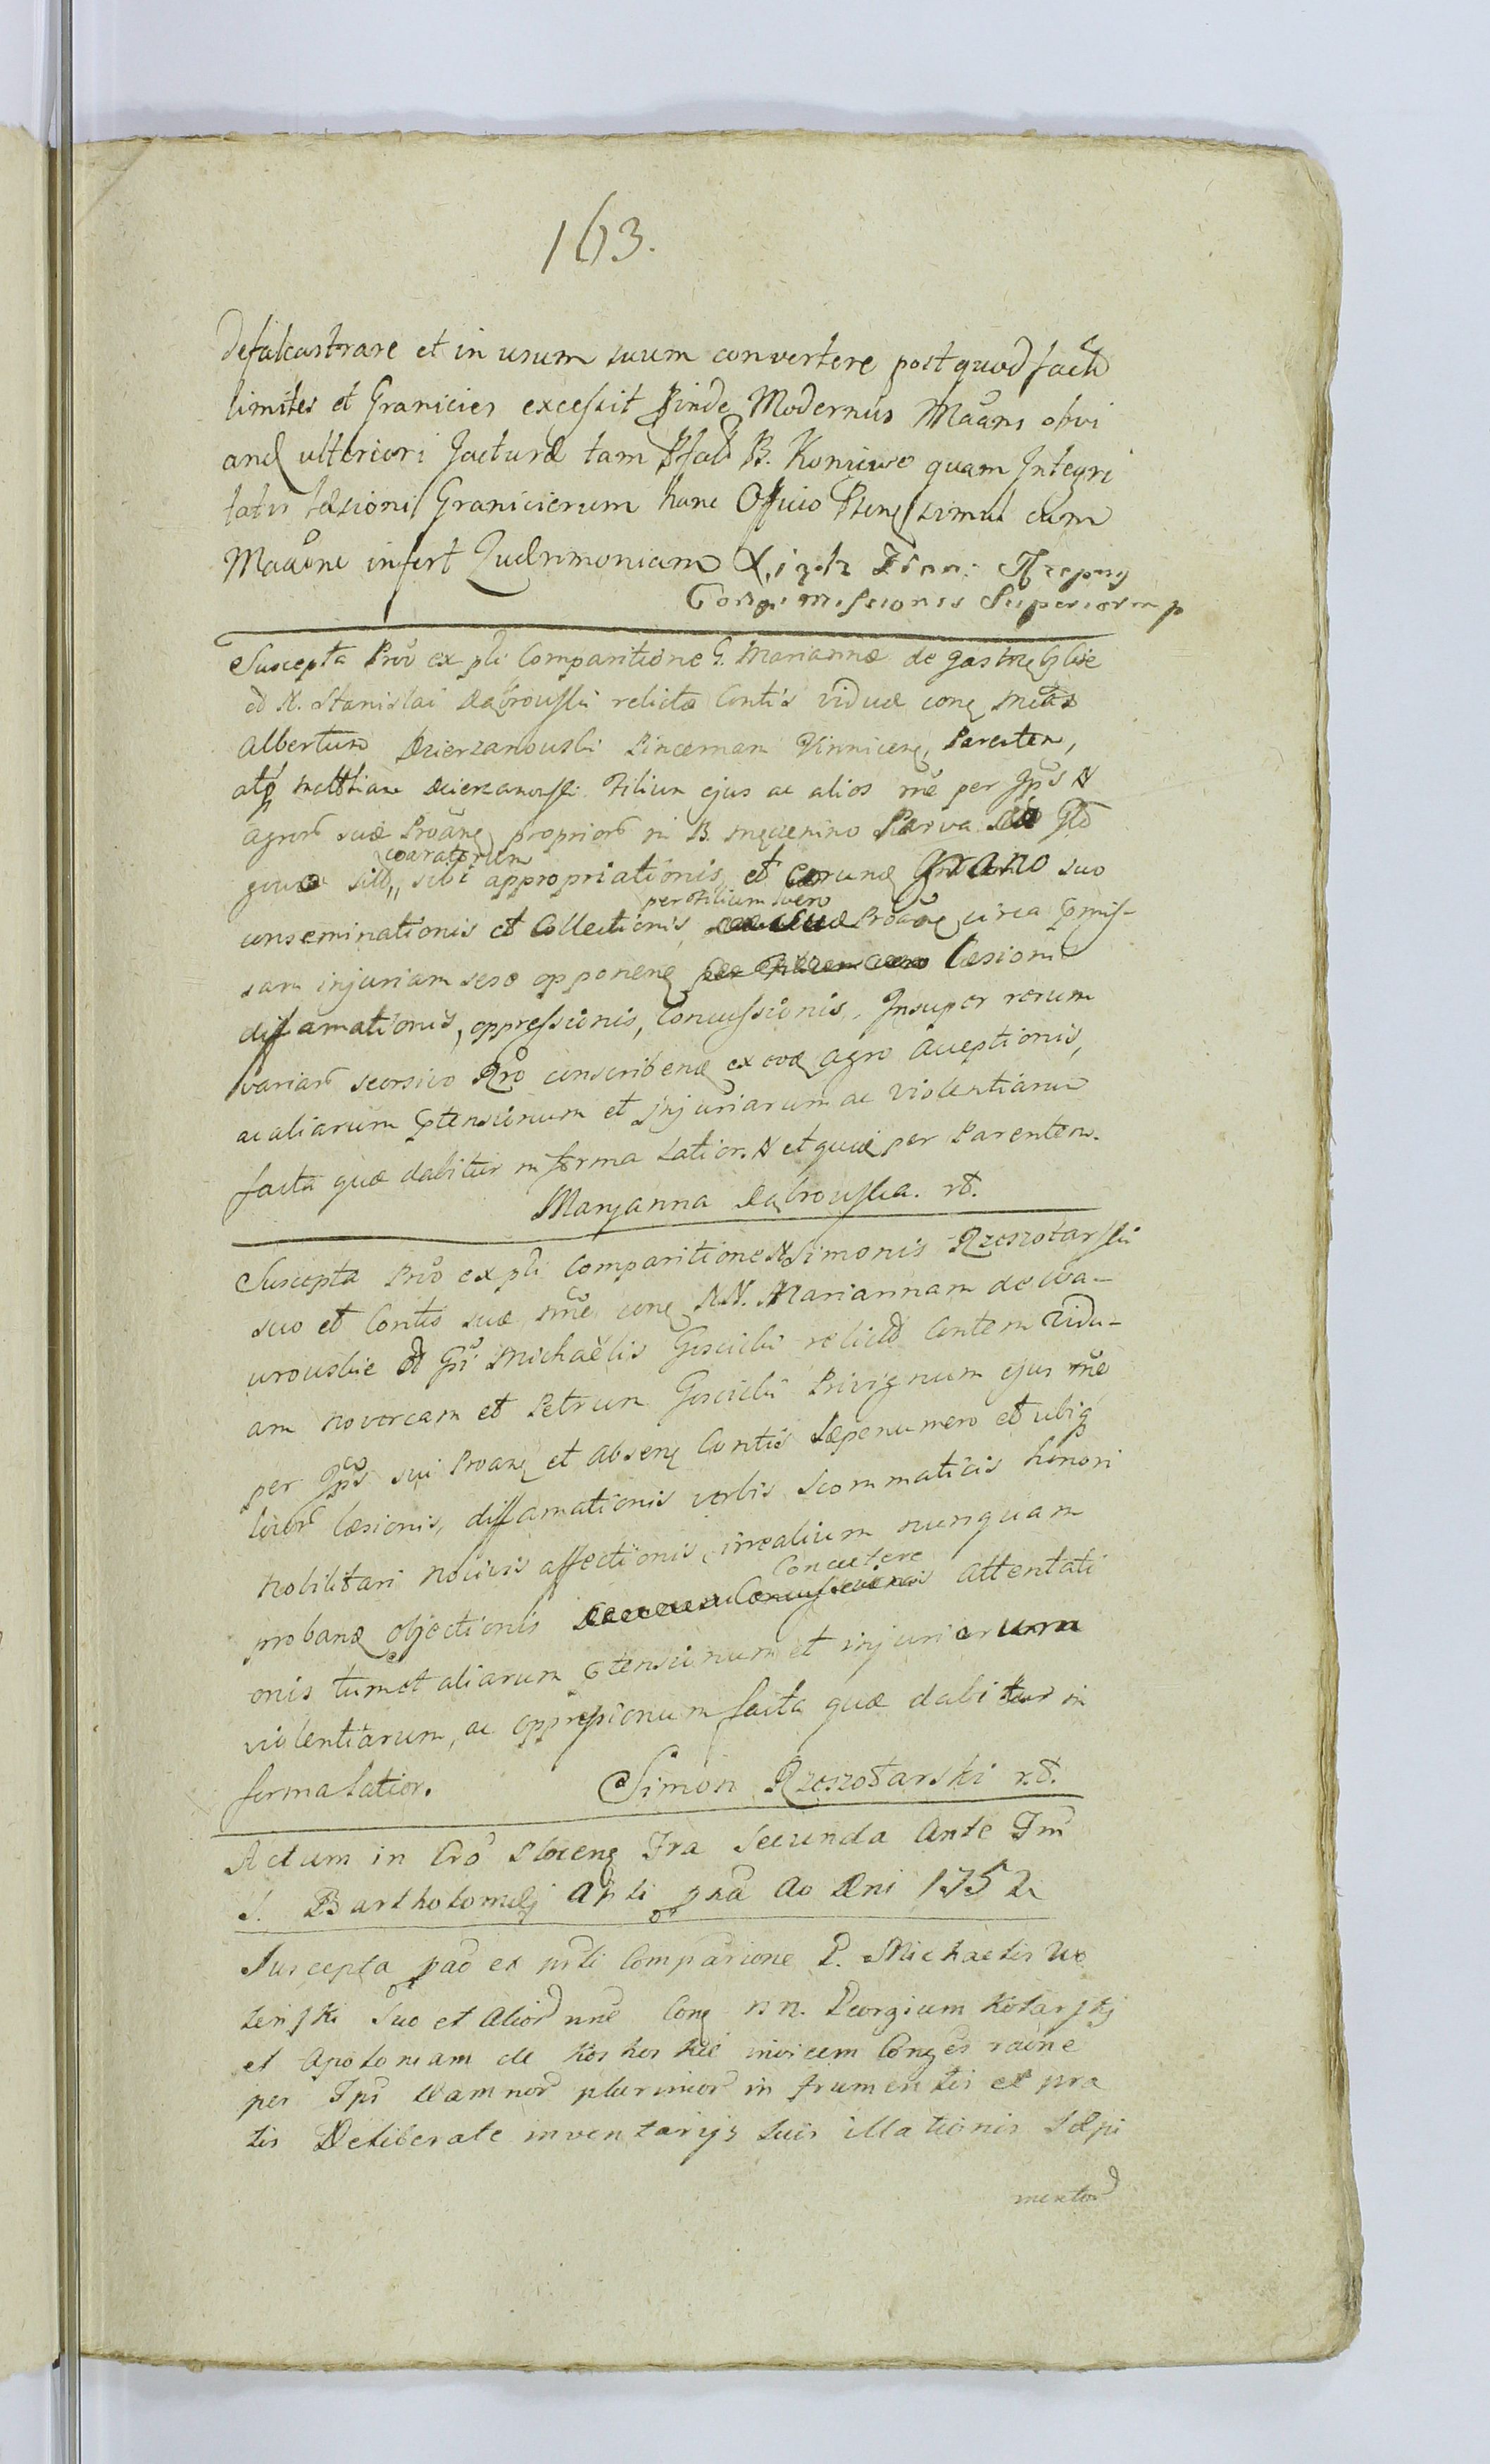 163.
defalcastrare et in usum suum convertere post quod facto
limites et Granicies excessit Proinde Modernus Maans obvi
and ulteriori Jacturæ tam B. Koniewo quam Integri
tatis læsioni Granicierum hanc Officio simul cum
Maaone infert Querimoniam
Suscepta Pnō ex pti Comparitione G. Mariannæ de
N. Stanislai Dąbrowski relictæ Contis viduæ conę
Albertum Dzierzanowski Pincernam Vinnicenę, Parentem,
atq Mathiam Dzierzanowski Filium ejus ac alios rne per Jps N
agror suæ Proanę proprior in B. Parva
coaratorum
sibi appropriationis et Grano suo
per Filium vero
conseminationis et Collectionis suæ Proanę circa pmis-
sam injuriam sese opponenę læsionis
diffamationis, oppressionis, Concussionis, Insuper rerum
variar seorsivo Rro conscribenę ex eođ agro acceptionis,
ac aliarum ptensionum et injuriarum ac violentiarum
facta quæ dabitur in forma latior. N et quid per Parentem.
Maryanna Dąbrowska. rđ.
Suscepta Pnō ex pti Comparitione N Simonis Rzeszotarski
suo et Contis suæ nne conę NN. Mariannam de Wa-
urouskie Michaëlis Gościcki relictæ Contem vidu-
am novercam et Petrum Gościcki Privignum ejus rne
per Jpos sui Proanę et absenę Contis sæpenumero et ubiq
locor læsionis, diffamationis verbis scommaticis honori
nobilitari nocivis affectionis, irrealium nunquam
Concutere
probanđ objectionis attentati
onis tum et aliarum ptensionum et injuriarum
violentiarum, ac oppressionum facta quæ dabitur in
forma latior. Simon Rzeszotarski rđ.
Actum in Cro Fra Secunda Ante Fm
S. Bartholomæj Apli Ao Dni 1752
Suscepta ex pti Comparione P. Michaelis
suo et alior nne Conę NN. Georgium Kotarskj
et Apoloniam de invicem Conges raone
per Jps Damnor plurimor in frumentis et pra
tis Deliberate inventarijs suis illationis Sæpi
mentor